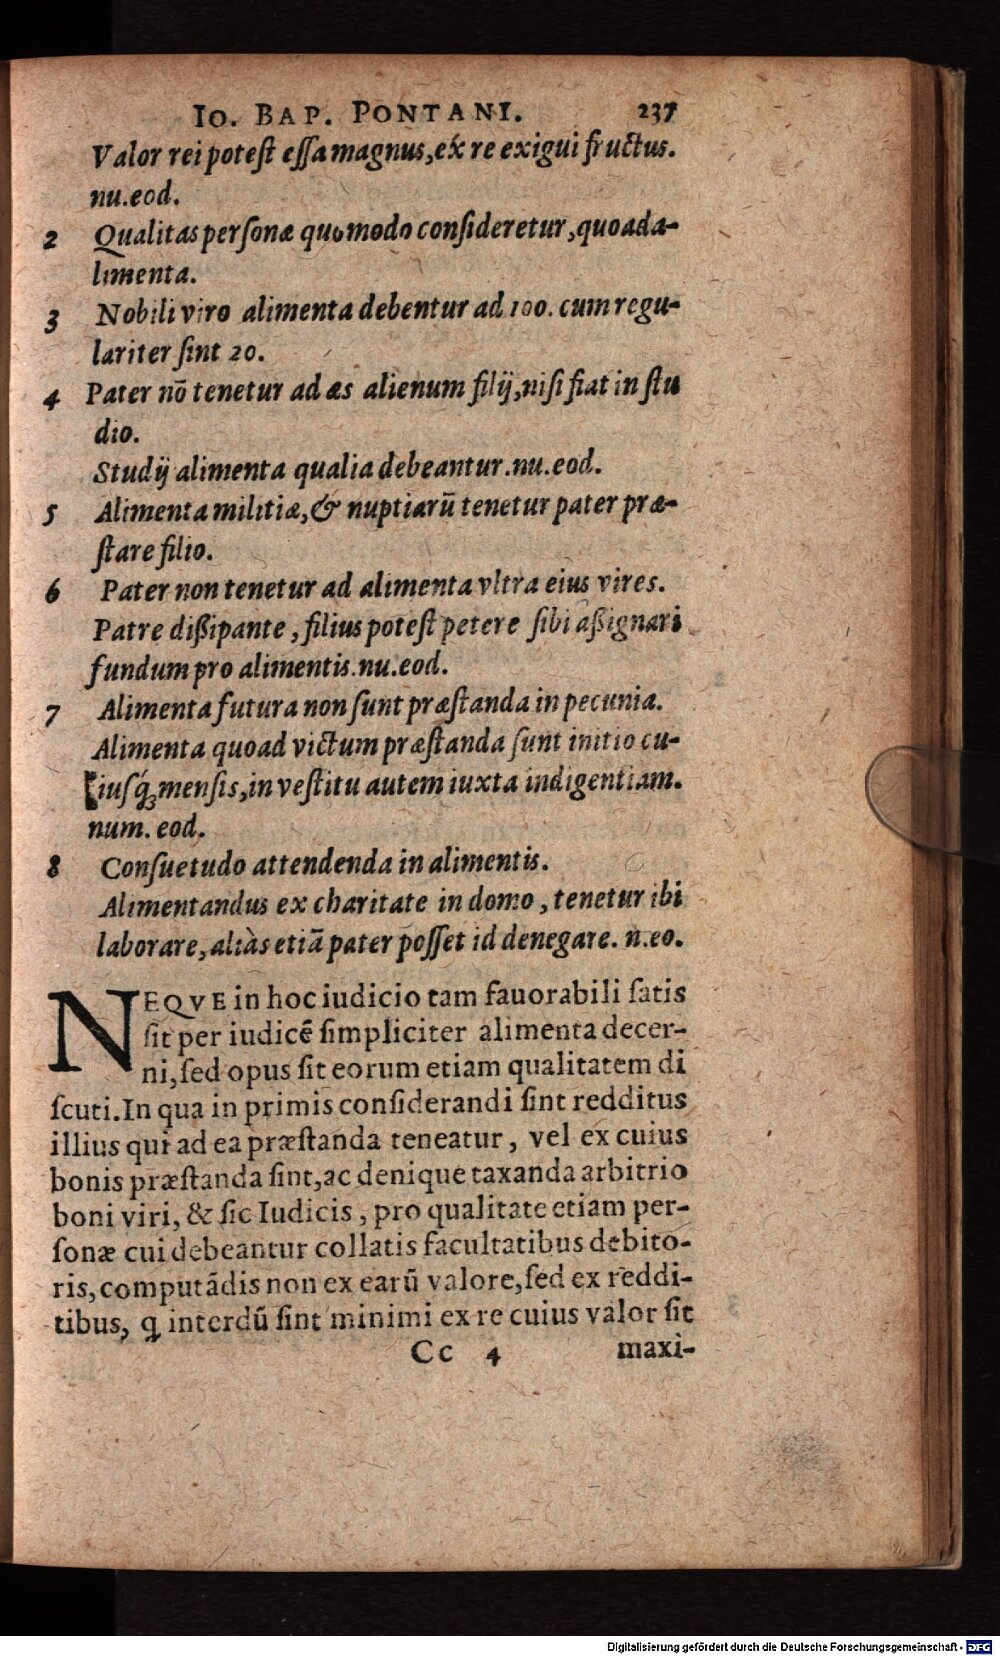 IO. BAP. PONTANI. 237
Valor rei potest essa magnus, & re exigui fructus.
nu.eod.
2 Qualitas personæ quomodo consideretur, quoad a-
limenta.
3 Nobili viro alimenta debentur ad 100. cum regu-
lariter sint 20.
4 Pater nõ tenetur ad æs alienum filij, nisi fiat in stu
dio.
Studij alimenta qualia debeantur. nu. eod.
5 Alimenta militiæ, & nuptiarũ tenetur pater præ-
stare filio.
6 Pater non tenetur ad alimenta vltra eius vires.
Patre dißipante, filius potest petere sibi aßignari
fundum pro alimentis. nu. eod.
7 Alimenta futura non sunt præstanda in pecunia.
Alimenta quoad victum præstanda sunt initio cu-
iusq́; mensis, in vestitu autem iuxta indigentiam.
num. eod.
8 Consuetudo attendenda in alimentis.
Alimentandus ex charitate in domo, tenetur ibi
laborare, aliàs etiã pater posset id denegare. n.eo.
NEQVE in hoc iudicio tam fauorabili satis
sit per iudicẽ simpliciter alimenta decer-
ni, sed opus sit eorum etiam qualitatem di
scuti. In qua in primis considerandi sint redditus
illius qui ad ea præstanda teneatur, vel ex cuius
bonis præstanda sint, ac denique taxanda arbitrio
boni viri, & sic Iudicis, pro qualitate etiam per-
sonæ cui debeantur collatis facultatibus debito-
ris, computãdis non ex earũ valore, sed ex reddi-
tibus, q interdũ sint minimi ex re cuius valor sit
Cc 4 maxi-
Digitalisierung gefördert durch die Deutsche Forschungsgemeinschaft - DFG